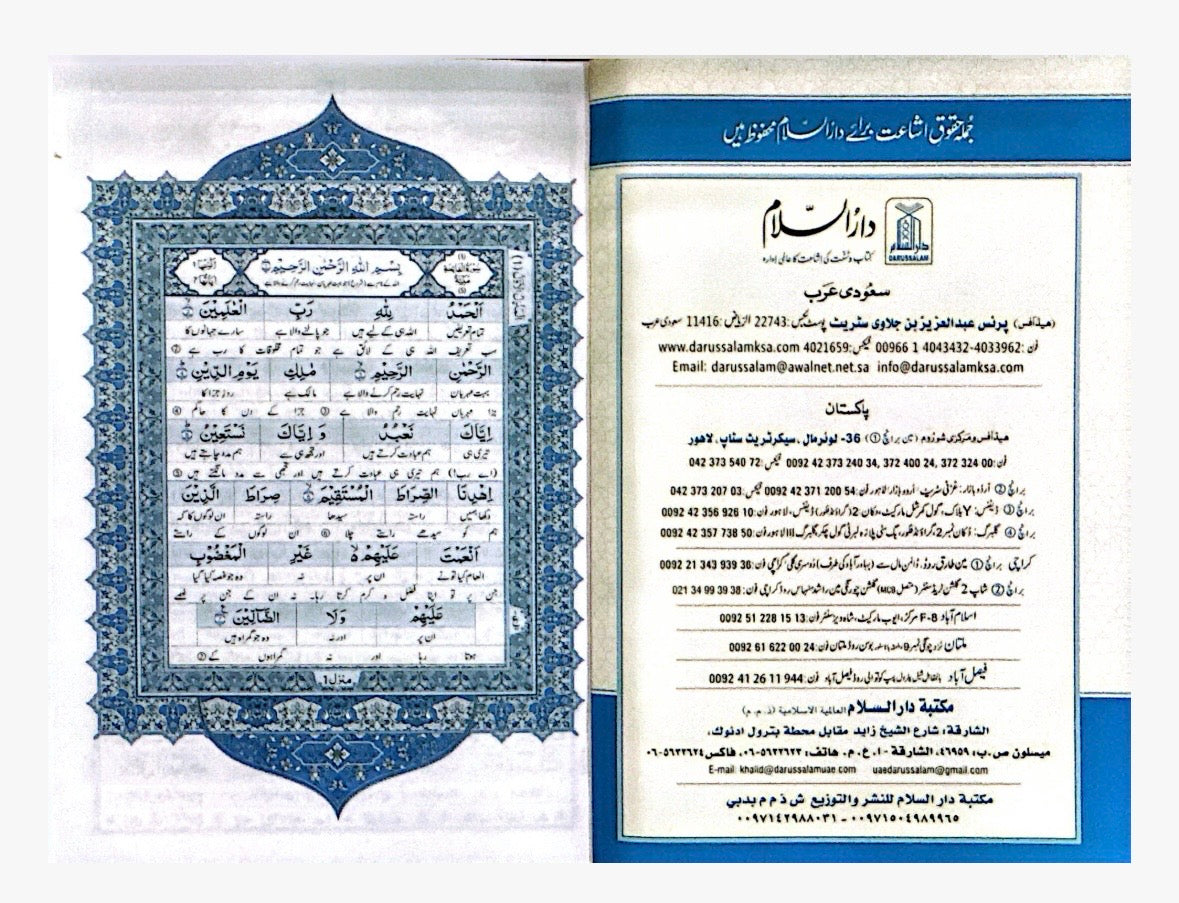 جملہ حقوق اشاعت برائے دارالسلام محفوظ ہیں
دارالسلام
DARUSSALAM
کتاب و سنت کی اشاعت کا عالمی ادارہ
سعودی عرب
(ہیڈ آفس) پرنس عبدالعزیز بن جلاوی سٹریٹ پوسٹ بکس: 22743 الریاض: 11416 سعودی عرب
فون: 00966 1 4043432-4033962 فیکس: 4021659 www.darussalamksa.com
Email: darussalam@awalnet.net.sa info@darussalamksa.com
پاکستان
ہیڈ آفس و مرکزی شوروم (مین برانچ ①) 36- لوئر مال، سیکرٹریٹ سٹاپ، لاہور
فون: 0092 42 373 240 34, 372 400 24, 372 324 00 فیکس: 042 373 540 72
برانچ ② اردو بازار: غزنی سٹریٹ، اردو بازار لاہور فون: 0092 42 371 200 54 فیکس: 042 373 207 03
برانچ ③ ڈیفنس: Y بلاک، گول کمرشل مارکیٹ، دکان: 2 (گراؤنڈ فلور) ڈیفنس، لاہور فون: 0092 42 356 926 10
برانچ ④ گلبرگ: دکان نمبر 2، گراؤنڈ فلور، بگ سٹی پلازہ، لبرٹی گول چکر، گلبرگ III لاہور فون: 0092 42 357 738 50
کراچی برانچ ① مین طارق روڈ، ڈالمن مال سے (بہادر آباد کی طرف) دوسری گلی کراچی فون: 0092 21 343 939 36
برانچ ② شاپ 2 گلشن (متصل MCB) گلشن چورنگی مین راشد منہاس روڈ کراچی فون: 021 34 99 39 38
اسلام آباد F-8 مرکز، ایوب مارکیٹ، شاہ ویز سنٹر فون: 0092 51 228 15 13
ملتان نزد چونگی نمبر 9، بوسن روڈ ملتان فون: 0092 61 622 00 24
فیصل آباد کوتوالی روڈ فیصل آباد فون: 0092 41 26 11 944
مكتبة دار السلام العالمية الاسلامية (ذ.م.م)
الشارقة، شارع الشيخ زايد مقابل محطة بترول ادنوك،
ميسلون ص.ب: ٤٦٩٥٩، الشارقة -ا.ع.م. هاتف: ٥٦٣٢٦٢٣-٠٦، فاكس ٥٦٣٢٦٢٤-٠٦
E-mail: khalid@darussalamuae.com uaedarussalam@gmail.com
مكتبة دار السلام للنشر والتوزيع ش ذ م م بدبي
٠٠٩٧١٤٢٩٨٨٠٣١ - ٠٠٩٧١٥٠٤٩٨٩٩٦٥
بِسْمِ اللهِ الرَّحْمٰنِ الرَّحِيْمِ
اَلْحَمْدُ لِلّٰهِ رَبِّ الْعٰلَمِيْنَ
تمام تعریفیں اللہ ہی کے لیے ہیں جو پالنے والا ہے سارے جہانوں کا
سب تعریف اللہ ہی کے لائق ہے جو تمام مخلوقات کا رب ہے ②
الرَّحْمٰنِ الرَّحِيْمِ مٰلِكِ يَوْمِ الدِّيْنِ
بہت مہربان نہایت رحم کرنے والا ہے مالک ہے روز جزا کا
بڑا مہربان نہایت رحم والا ہے ③ جزا کے دن کا حاکم ④
اِيَّاكَ نَعْبُدُ وَ اِيَّاكَ نَسْتَعِيْنُ
تیری ہی ہم عبادت کرتے ہیں اور تجھ ہی سے ہم مدد چاہتے ہیں
(اے رب!) ہم تیری ہی عبادت کرتے ہیں اور تجھی سے مدد مانگتے ہیں ⑤
اِهْدِنَا الصِّرَاطَ الْمُسْتَقِيْمَ صِرَاطَ الَّذِيْنَ
دکھا ہمیں راستہ سیدھا راستہ ان لوگوں کا کہ
ہم کو سیدھے راستے چلا ⑥ ان لوگوں کے راستے
اَنْعَمْتَ عَلَيْهِمْ غَيْرِ الْمَغْضُوْبِ
انعام کیا تو نے ان پر نہ وہ جو غصہ کیا گیا
جن پر تو اپنا فضل و کرم کرتا رہا۔ نہ ان کے جن پر غصے
عَلَيْهِمْ وَلَا الضَّآلِّيْنَ
ان پر اور نہ وہ جو گمراہ ہیں
ہوتا رہا اور نہ گمراہوں کے ⑦
منزل 1